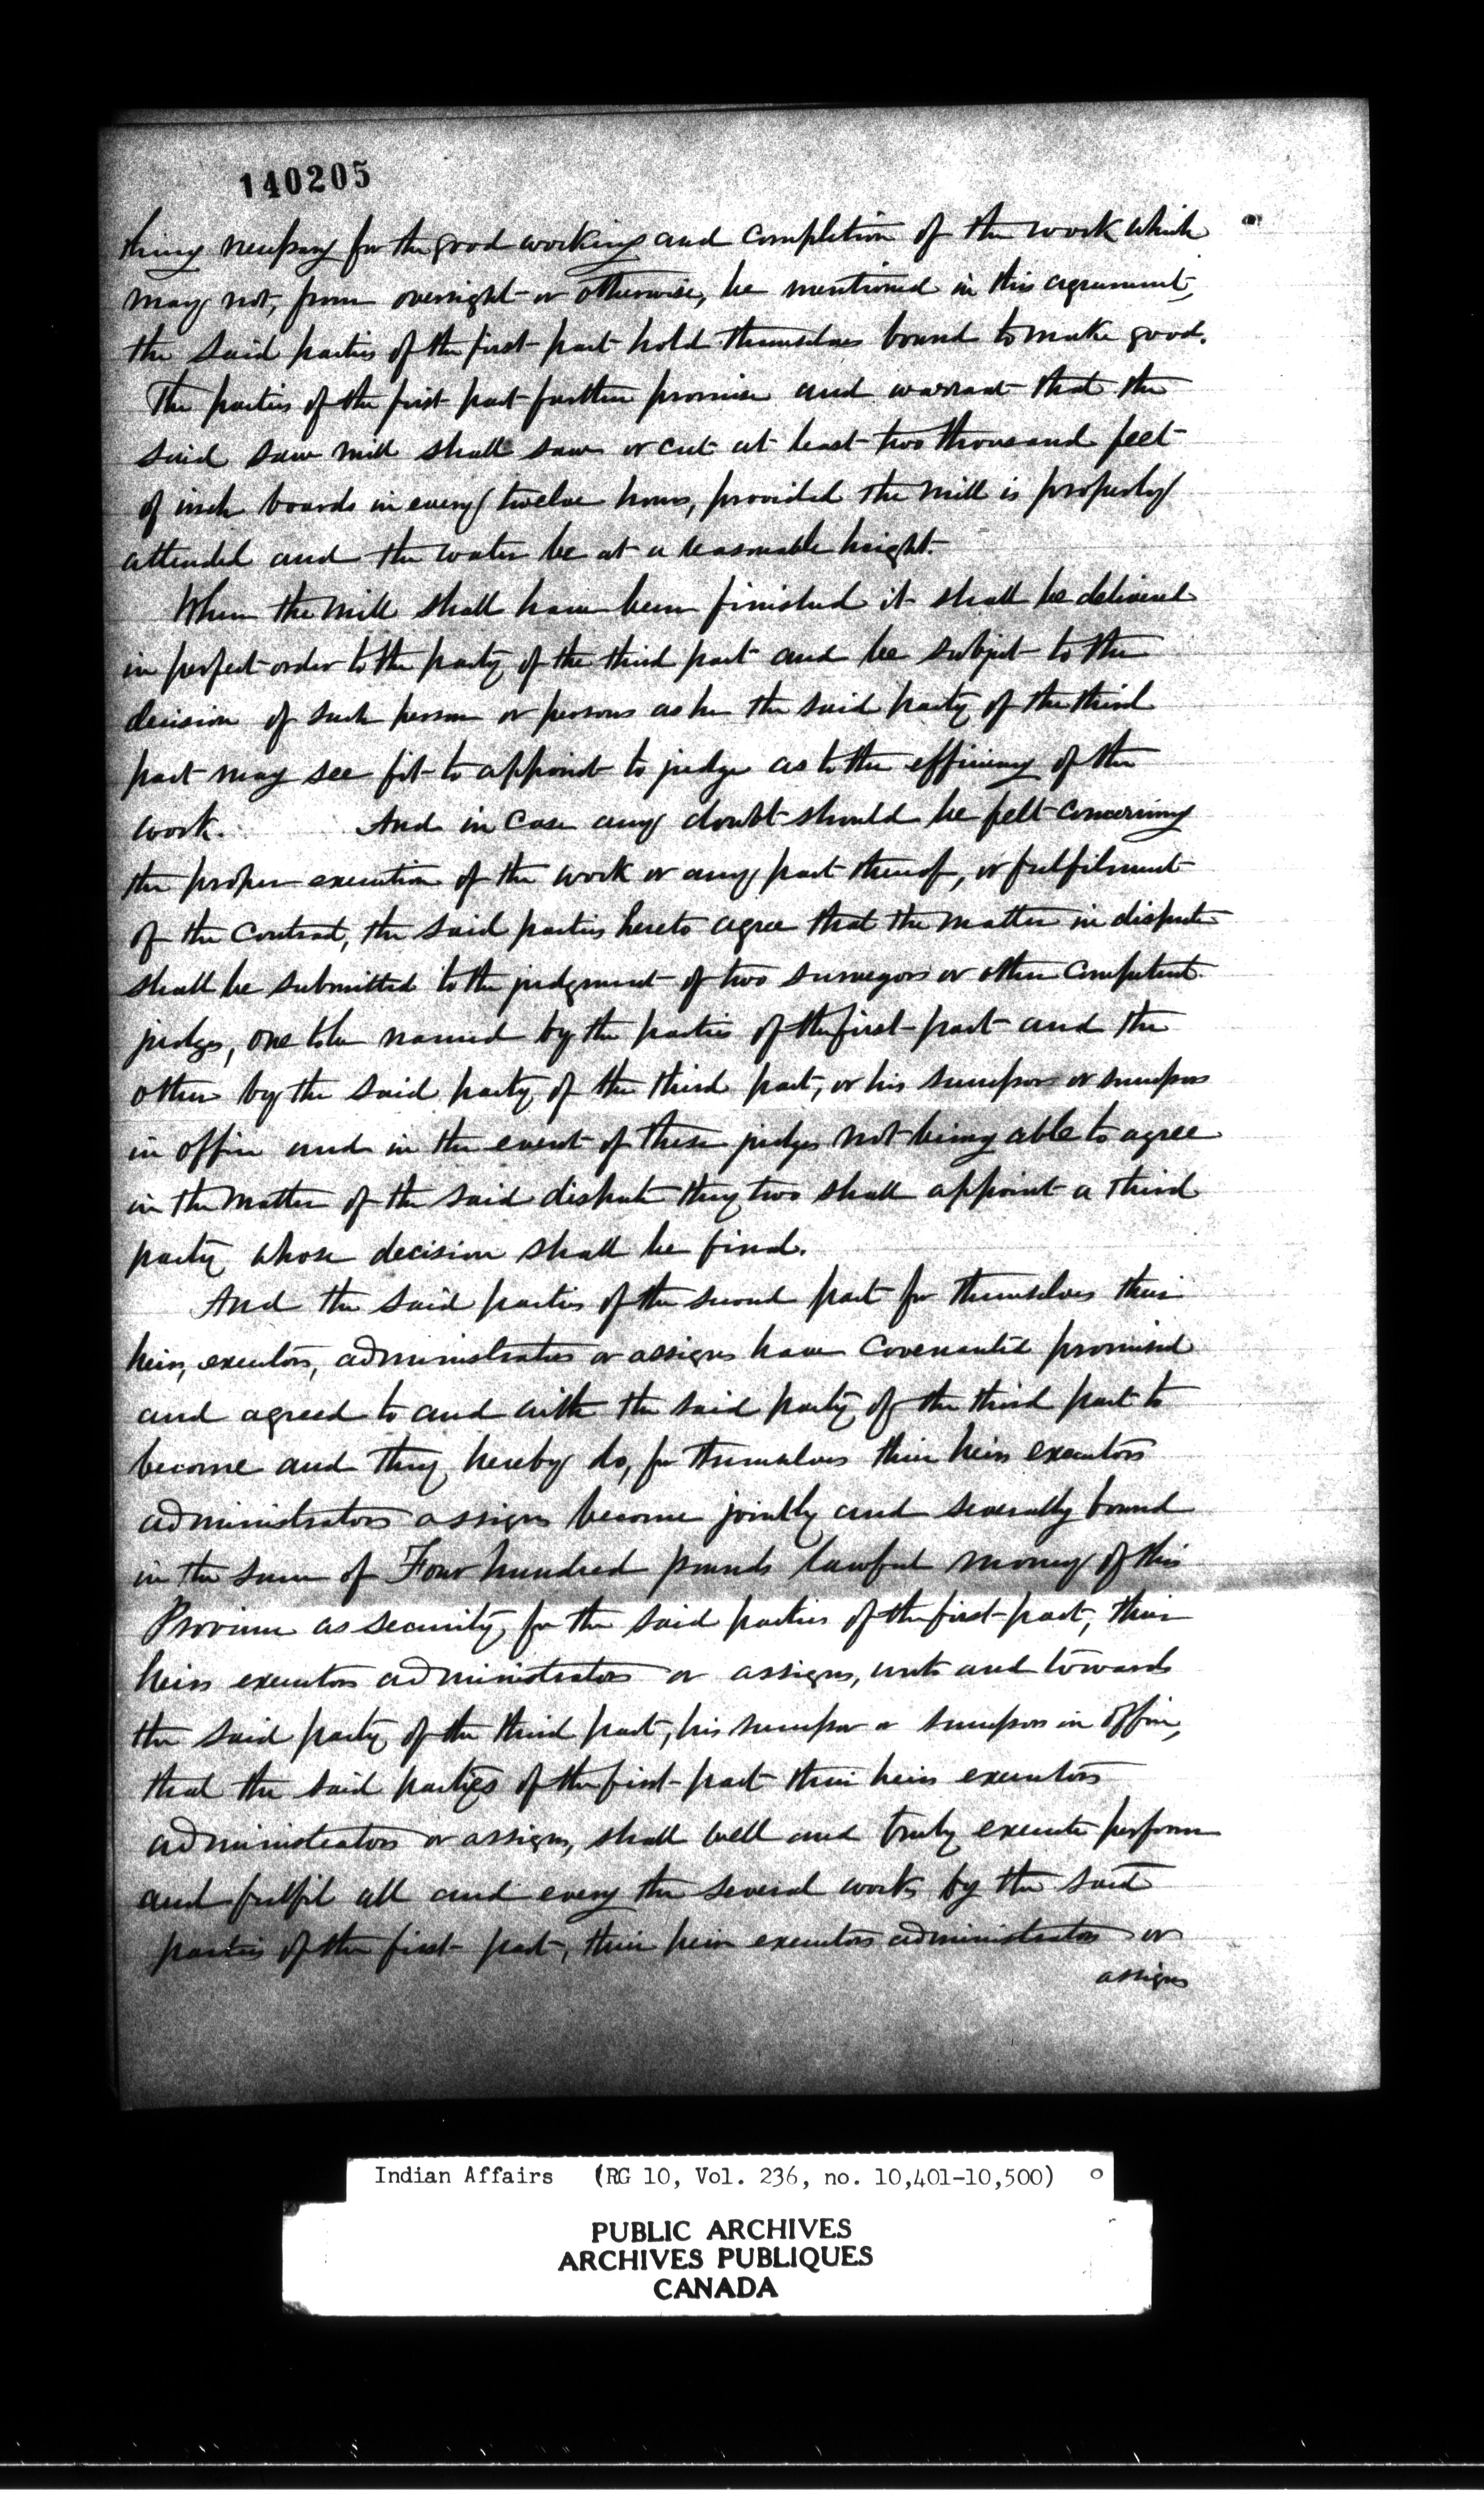 140205
thing necessary for the good working and completion of the work which
may not, from oversight or otherwise, be mentioned in this agreement,
the said parties of the first part hold themselves bound to make good.
The parties of the first part further promise and warrant that the
said saw mill shall saw or cut at least two thousand feet
of inch boards in every twelve hours, provided the mill is properly
attended and the water be at a reasonable height.
When the mill shall have been finished it shall be delivered
in perfect order to the party of the third part and be subject to the
decision of such person or persons as he the said party of the third
part may see fit to appoint to judge as to the efficiency of the
work. And in case any doubt should be felt concerning
the proper execution of the work or any part thereof, or fulfilment
of the Contract, the said parties hereto agree that the matter in dispute
shall be submitted to the judgment of two surveyors or other competent
judges, one to be named by the parties of the first part and the
other by the said party of the third part, or his successor or successors
in office and in the event of these judges not being able to agree
in the matter of the said dispute they two shall appoint a third
party whose decision shall be final.
And the said parties of the second part for themselves their
heirs, executors, administrators or assigns have covenanted promised
and agreed to and with the said party of the third part to
become and they hereby do, for themselves their heirs executors
administrators assigns become jointly and severally bound
in the sum of Four hundred pounds lawful money of this
Province as security for the said parties of the first part, their
heirs executors administrators or assigns, unto and towards
the said party of the third part, his successor or successors in office,
that the said parties of the first part their heirs executors
administrators or assigns, shall well and truly execute perform
and fulfil all and every the several works by the said
parties of the first part, their heirs executors administrators or
assigns
Indian Affairs (RG 10, Vol. 236, no. 10,401-10,500)
PUBLIC ARCHIVES
ARCHIVES PUBLIQUES
CANADA